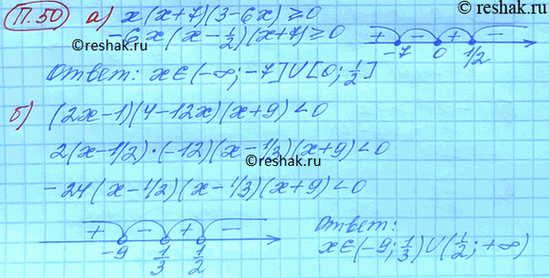 П.50 а) x(x+7)(3-6x)≥0
-6x(x-1/2)(x+7)≥0
+ - + -
-7 0 1/2
Ответ: x∈(-∞;-7]∪[0;1/2]
б) (2x-1)(4-12x)(x+9)<0
2(x-1/2)·(-12)(x-1/3)(x+9)<0
-24(x-1/2)(x-1/3)(x+9)<0
+ - + -
-9 1/3 1/2
Ответ:
x∈(-9;1/3)∪(1/2;+∞)
©reshak.ru
©reshak.ru
©reshak.ru
©reshak.ru